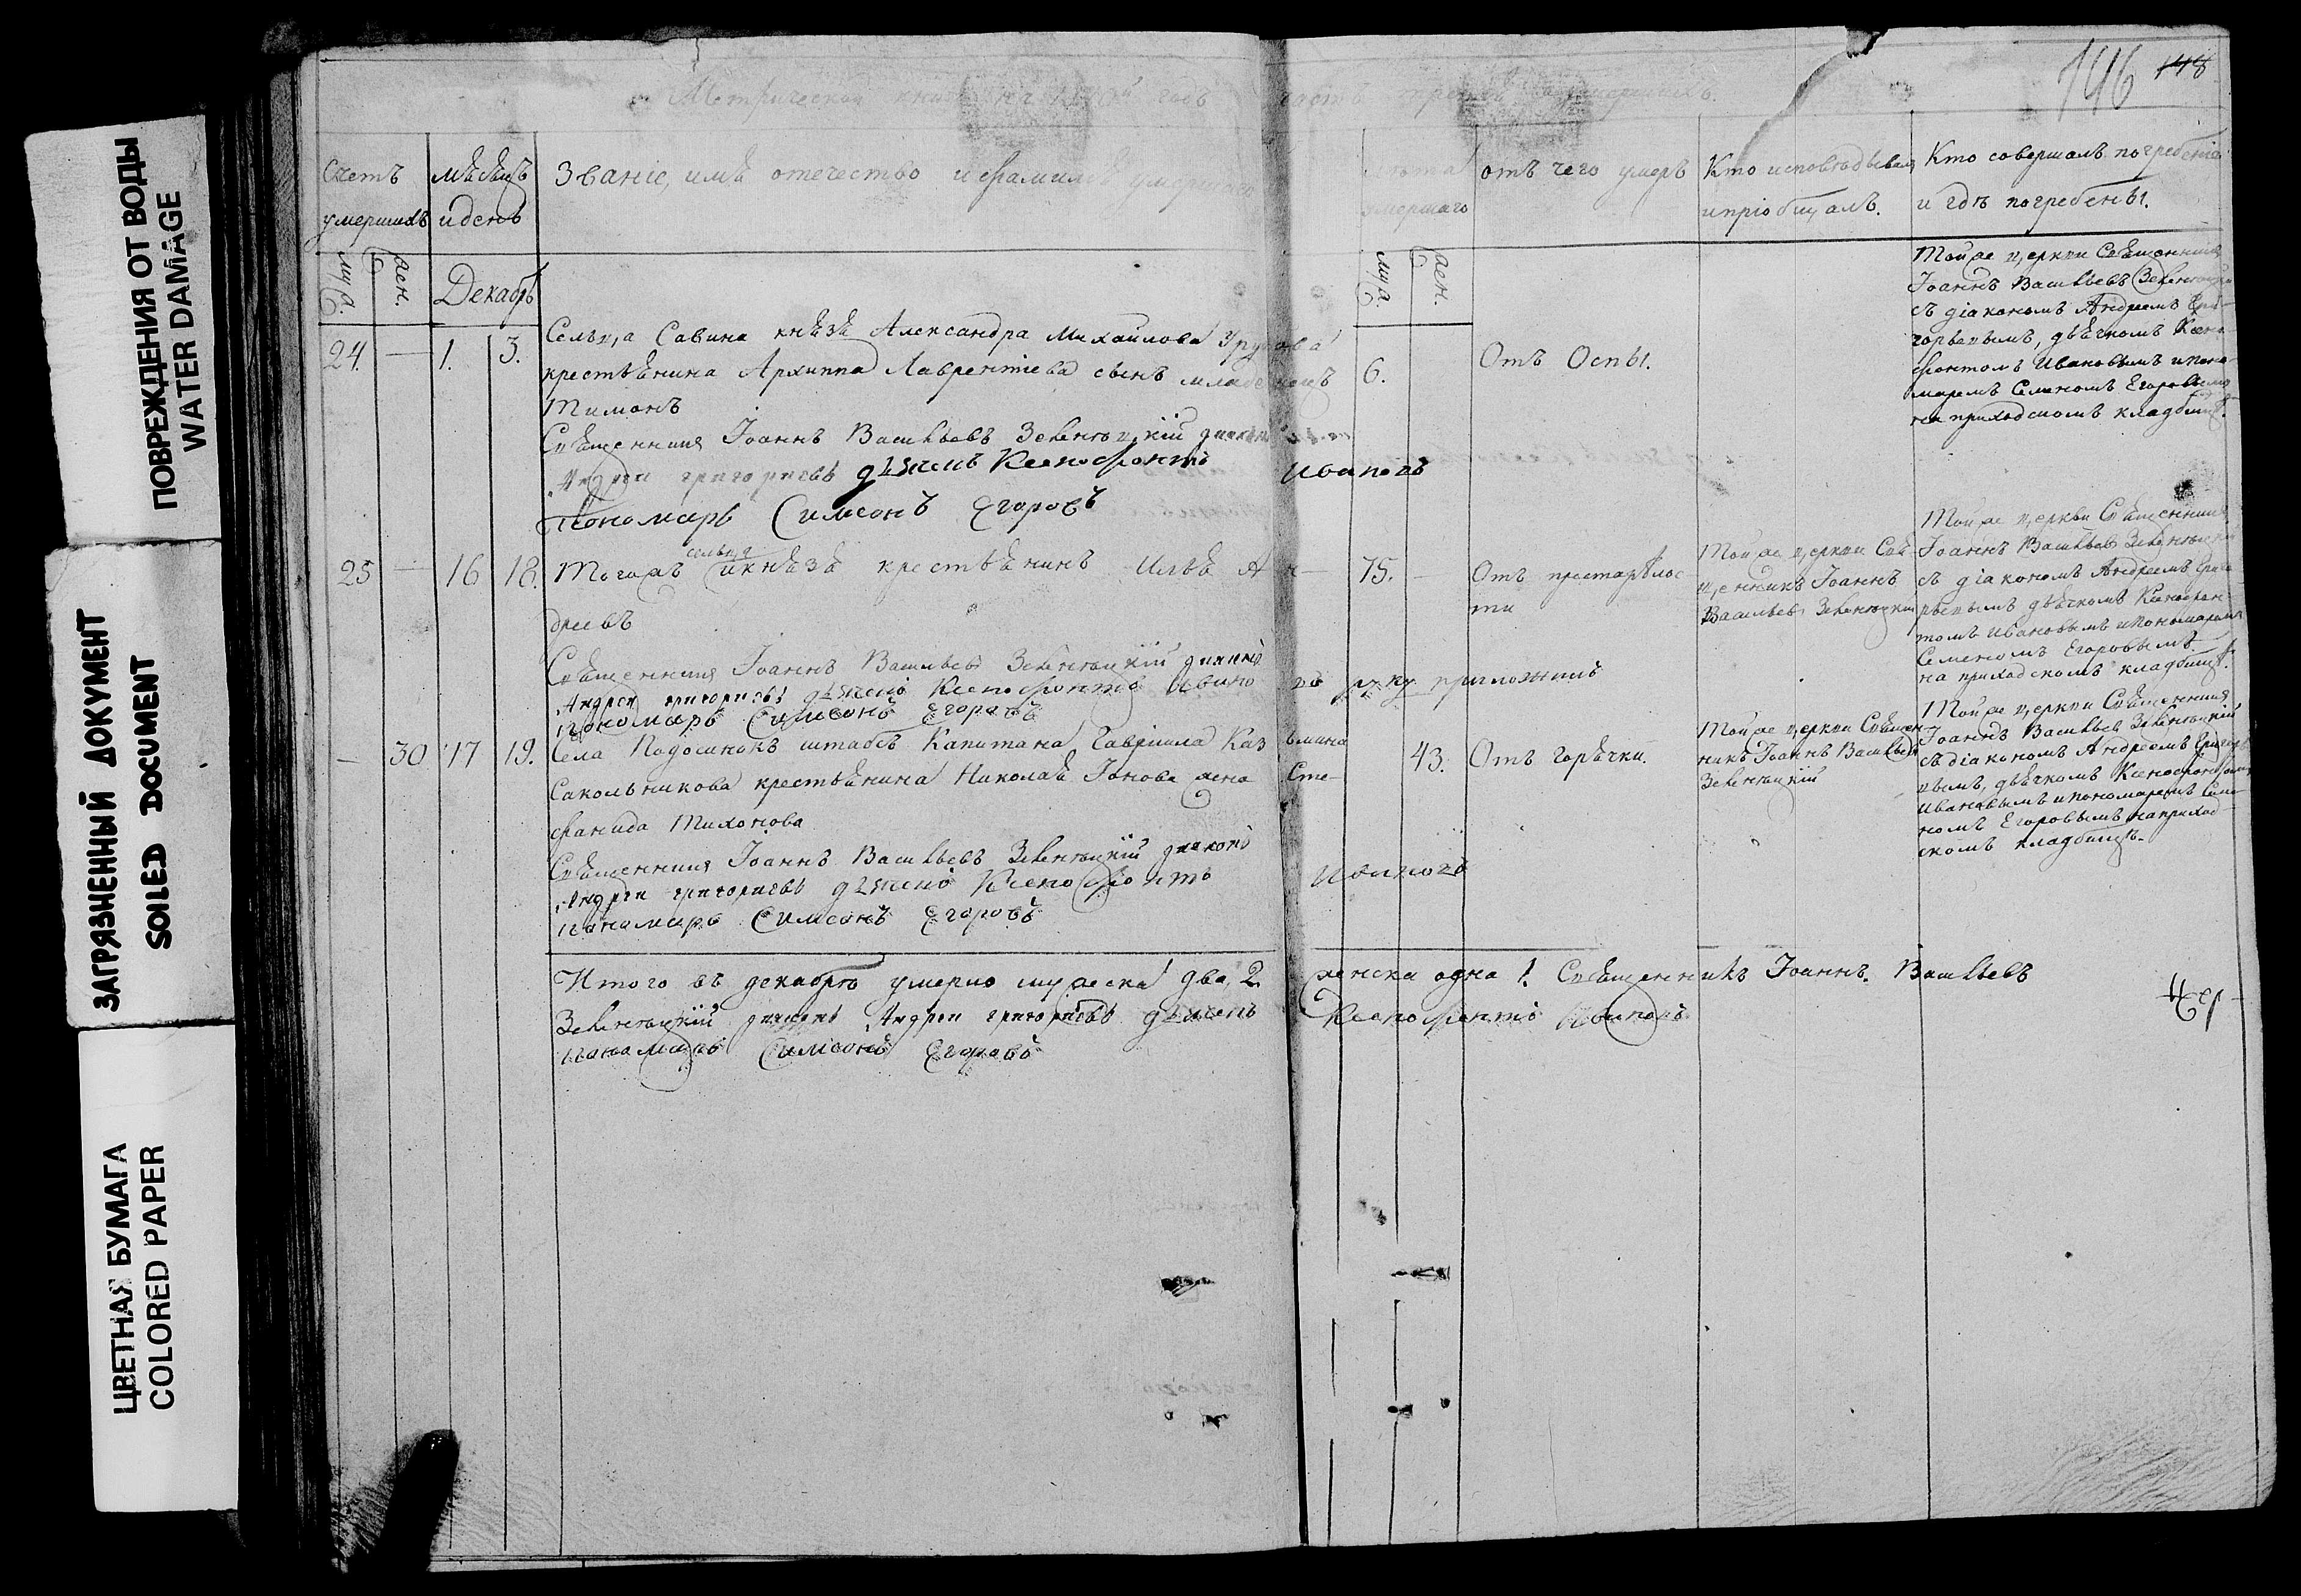 ПОВРЕЖДЕНИЯ ОТ ВОДЫ
WATER DAMAGE
ЗАГРЯЗНЕННЫЙ ДОКУМЕНТ
SOILED DOCUMENT
ЦВЕТНАЯ БУМАГА
COLORED PAPER
146 148
Метрической книги на годъ часть третія о умершихъ.
Счетъ умершихъ
мѣсяцъ и день
Званіе, имя отечество и фамилія умершаго
лѣта умершаго
отъ чего умеръ
Кто исповѣдывалъ и пріобщалъ.
Кто совершалъ погребеніе и гдѣ погребены.
муж. жен. Декабрь
муж. жен.
24. — 1. 3.
Сельца Савина князя Александра Михайлова
крестьянина Архиппа Лаврентіева сынъ младенецъ
Тимонъ
6.
Отъ Оспы.
Тойже церкви Священникъ
Іоаннъ Васильевъ
съ діакономъ Андреемъ Гри-
горьевымъ, дьячкомъ Ксено-
фонтомъ Ивановымъ и поно-
маремъ Семеномъ Егоровымъ
на приходскомъ кладбищѣ.
Священникъ Іоаннъ Васильевъ діаконъ
Андрей григорьевъ дьячекъ Ксенофонтъ Ивановъ
Пономарь Симеонъ Егоровъ
25 — 16 18.
Тогожъ сельца и князя крестьянинъ Илья Ан-
дреевъ
75. —
Отъ престарѣлос
ти
Тойже церкви Свя-
щенникъ Іоаннъ
Васильевъ
Тойже церкви Священникъ
Іоаннъ Васильевъ
съ діакономъ Андреемъ Григо
рьевымъ дьячкомъ Ксенофон-
томъ Ивановымъ и пономаремъ
Семеномъ Егоровымъ
на приходскомъ кладбищѣ.
Священникъ Іоаннъ Васильевъ діаконъ
Андрей григорьевъ дьячекъ Ксенофонтъ Ивановъ руку приложилъ
пономарь Симеонъ Егоровъ
— 30 17 19.
Села Подосинокъ штабсъ Капитана Гавріила Казьмина
Сакольникова крестьянина Николая Іонова жена Сте-
фанида Тихонова
43.
Отъ горячки.
Тойже церкви Священ-
никъ Іоаннъ Васильевъ
Тойже церкви Священникъ
Іоаннъ Васильевъ
съ діакономъ Андреемъ Григорь
евымъ, дьячкомъ Ксенофонтомъ
Ивановымъ и пономаремъ Семе-
номъ Егоровымъ на приход-
скомъ кладбищѣ.
Священникъ Іоаннъ Васильевъ діаконъ
Андрей григорьевъ дьячекъ Ксенофонтъ Ивановъ
пономарь Симеонъ Егоровъ
Итого въ декабрѣ умерло мужеска два, 2. женска одна 1. Священникъ Іоаннъ Васильевъ
діаконъ Андрей григорьевъ дьячекъ Ксенофонтъ Ивановъ
пономарь Симеонъ Егоровъ